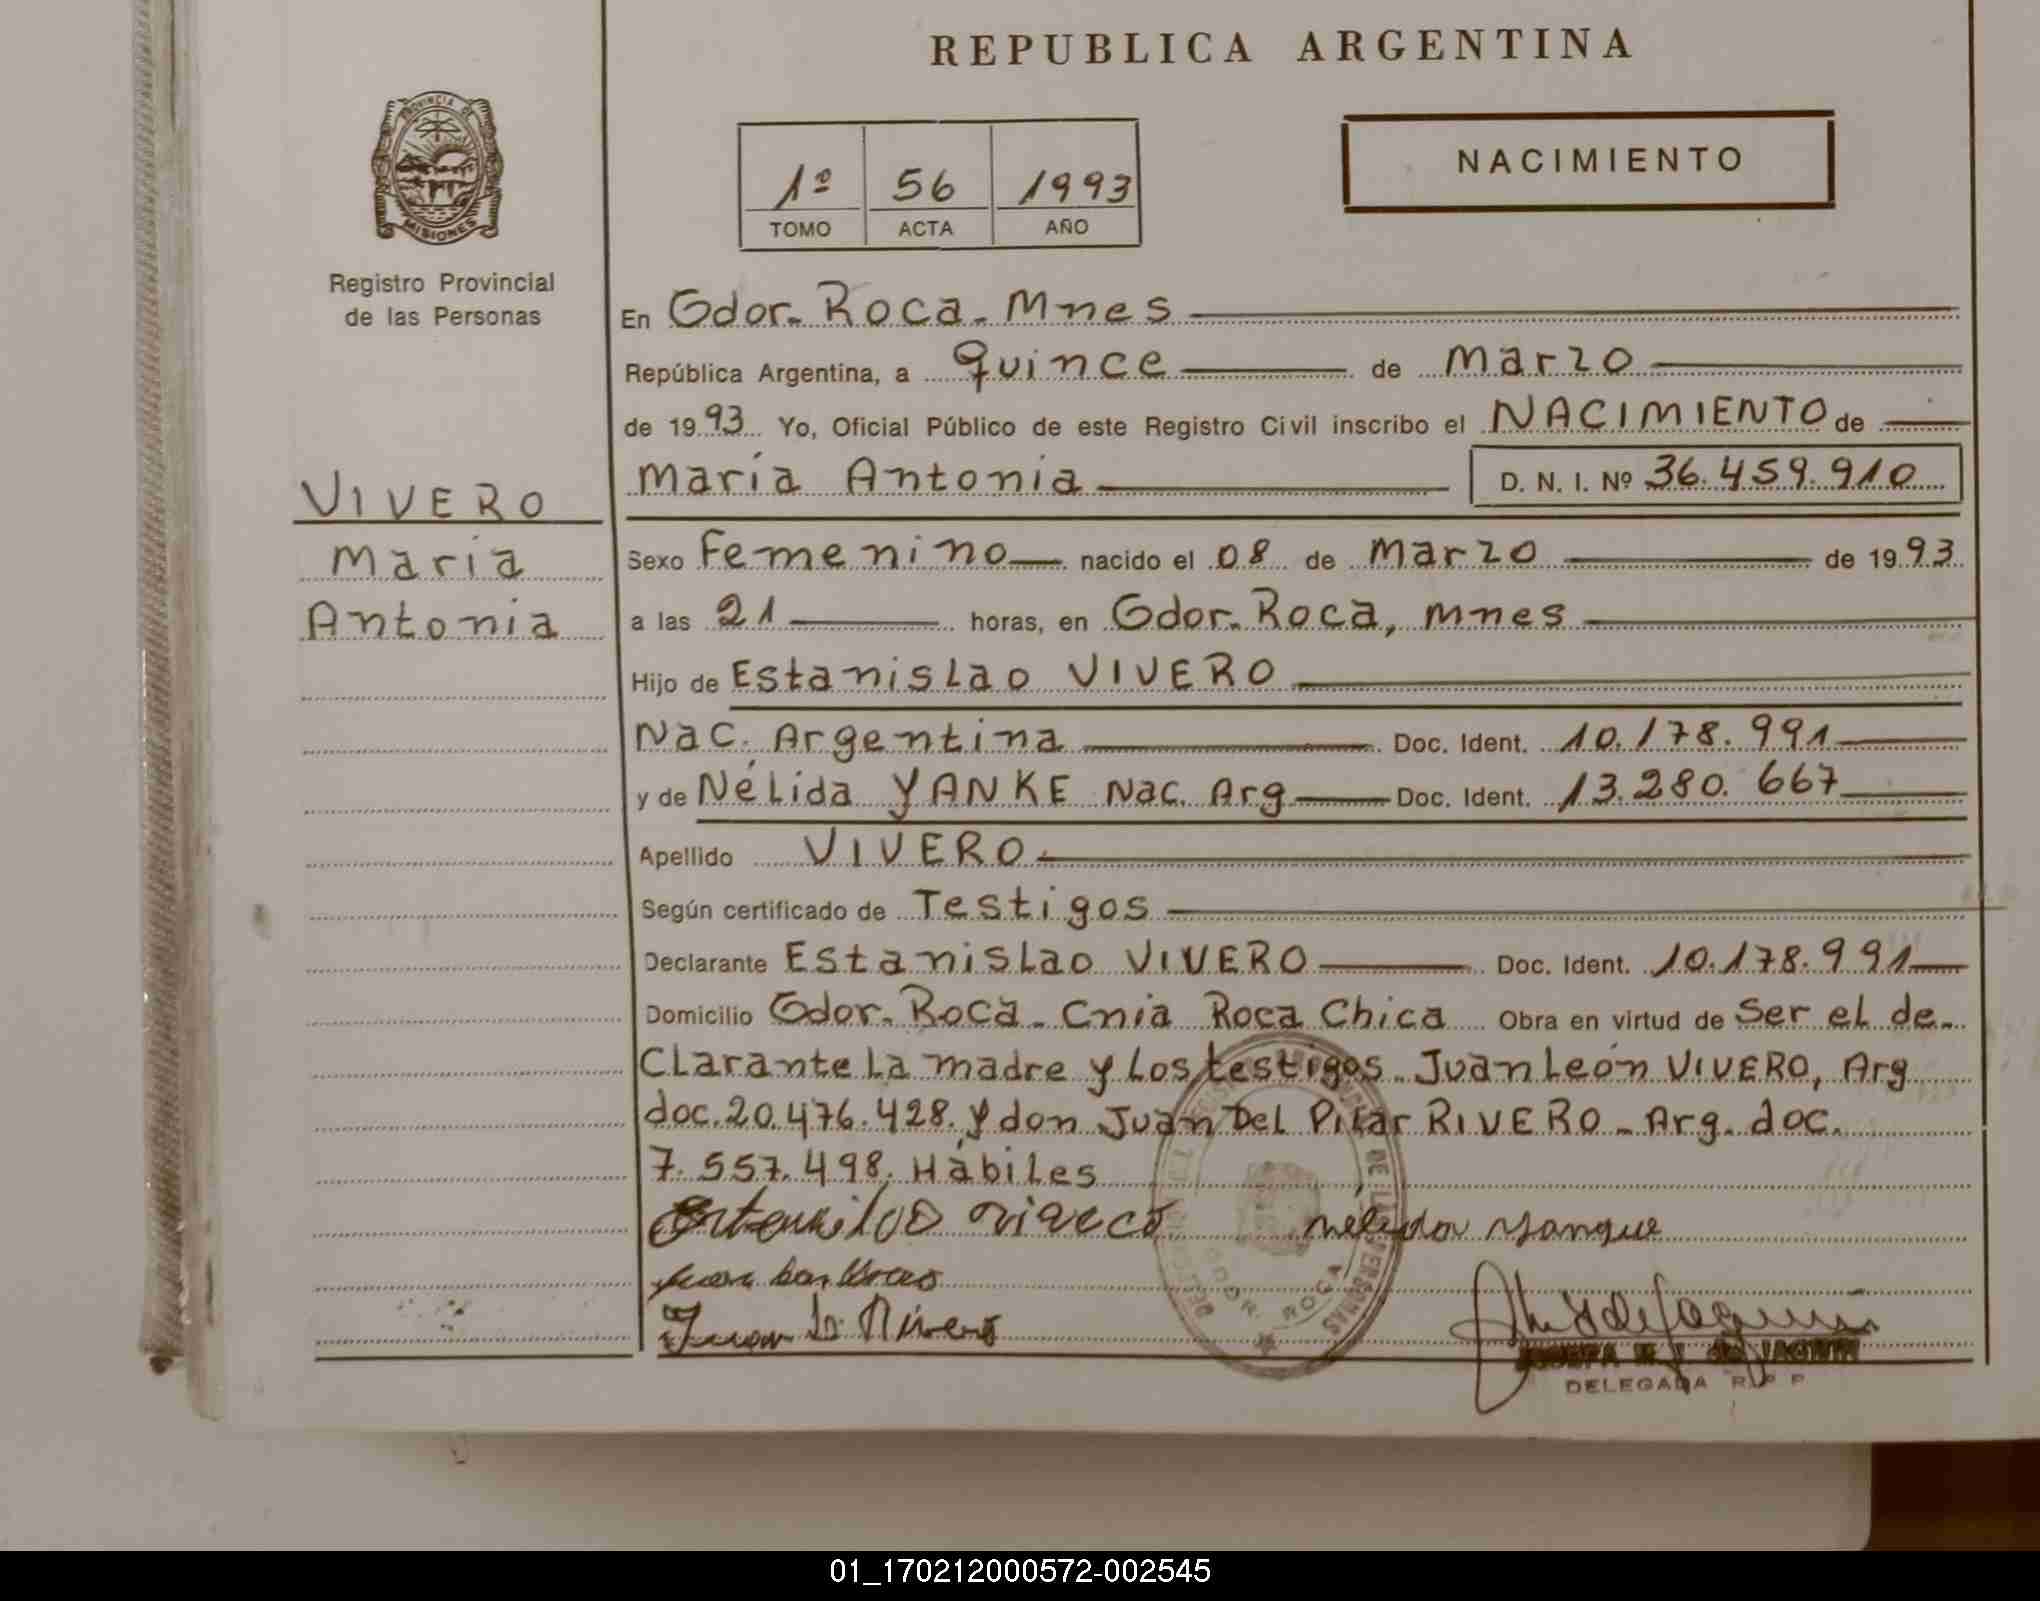 REPUBLICA ARGENTINA
PROVINCIA DE
MISIONES
Registro Provincial
de las Personas
1º 56 1993
TOMO ACTA AÑO
NACIMIENTO
En Gdor. Roca. Mnes
República Argentina, a quince de Marzo
de 1993 Yo, Oficial Público de este Registro Civil inscribo el NACIMIENTO de
María Antonia D. N. I. Nº 36.459.910
VIVERO
María
Antonia
Sexo Femenino nacido el 08 de Marzo de 1993
a las 21 horas, en Gdor. Roca, Mnes
Hijo de Estanislao VIVERO
Nac. Argentina Doc. Ident. 10.178.991
y de Nélida YANKE Nac. Arg Doc. Ident. 13.280.667
Apellido VIVERO
Según certificado de Testigos
Declarante Estanislao VIVERO Doc. Ident. 10.178.991
Domicilio Gdor. Roca. Cnia Roca Chica Obra en virtud de Ser el de-
clarante la madre y los testigos. Juan León VIVERO, Arg
doc. 20.476.428. y don Juan Del Pilar RIVERO - Arg. doc.
7.557.498. Hábiles
DE LAS PERSONAS
GDOR. ROCA
DELEGADA R P P
01_170212000572-002545